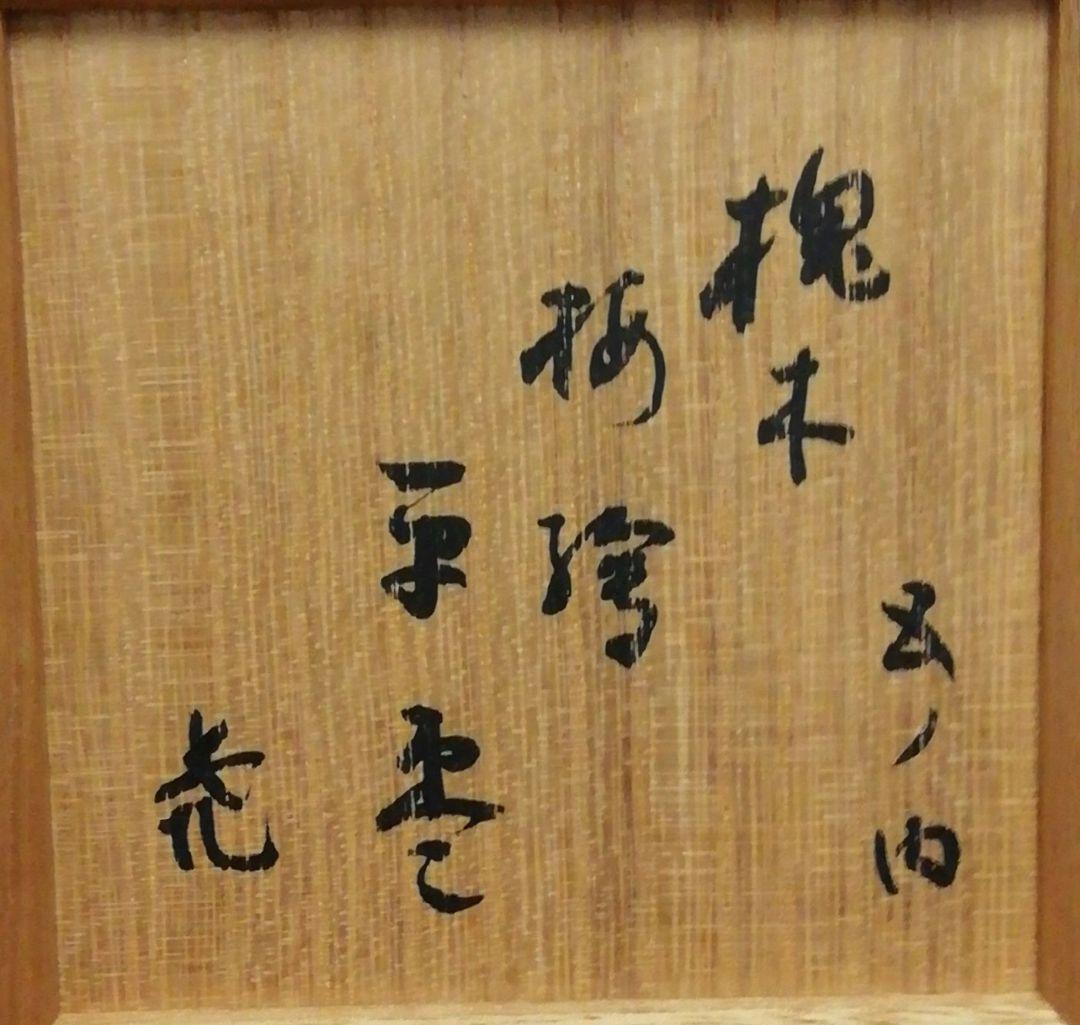 五ノ内
槐木
梅繪
平棗